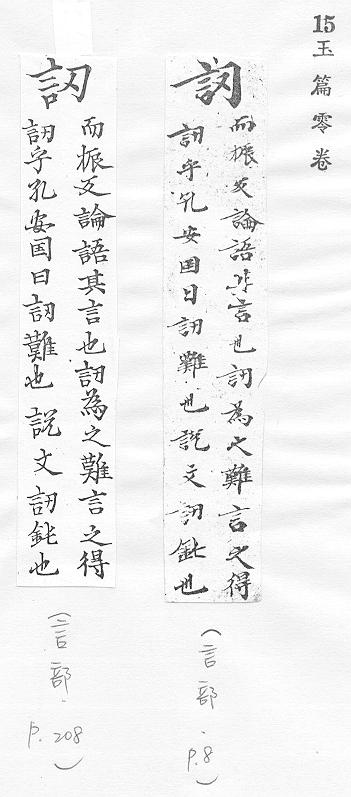 15玉篇零卷
訒
而振反論語其言也訒為之難言之得
訒乎孔安国曰訒難也說文訒鈍也
(言部.p.8)
訒
而振反論語其言也訒為之難言之得
訒乎孔安国曰訒難也說文訒鈍也
(言部.p.208)